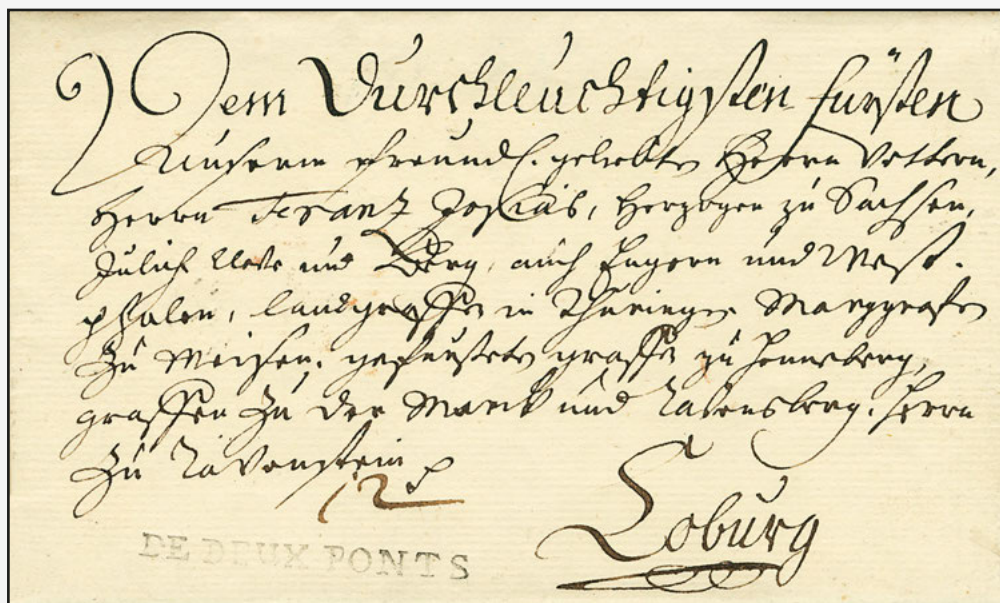 Dem Durchleuchtigsten Fürsten
Unserm freundl. geliebten Herrn Vettern,
Herrn Frantz Josias, Hertzogen zu Sachsen,
Jülich Cleve und Berg, auch Engern und West-
phalen, Landgraffen in Thüringen Marggrafen
zu Meissen, gefürsteten graffen zu Henneberg,
graffen zu der Marck und Ravensberg, Herrn
zu Ravenstein
12
Coburg
DE DEUX PONTS